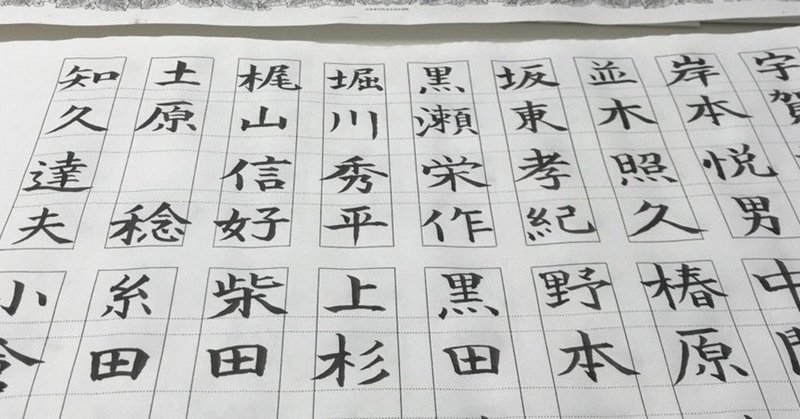 宇賀
岸本悦男
並木照久
坂東孝紀
黒瀬栄作
堀川秀平
梶山信好
土原 稔
知久達夫
中
椿原
野本
黒田
上杉
柴田
糸田
小